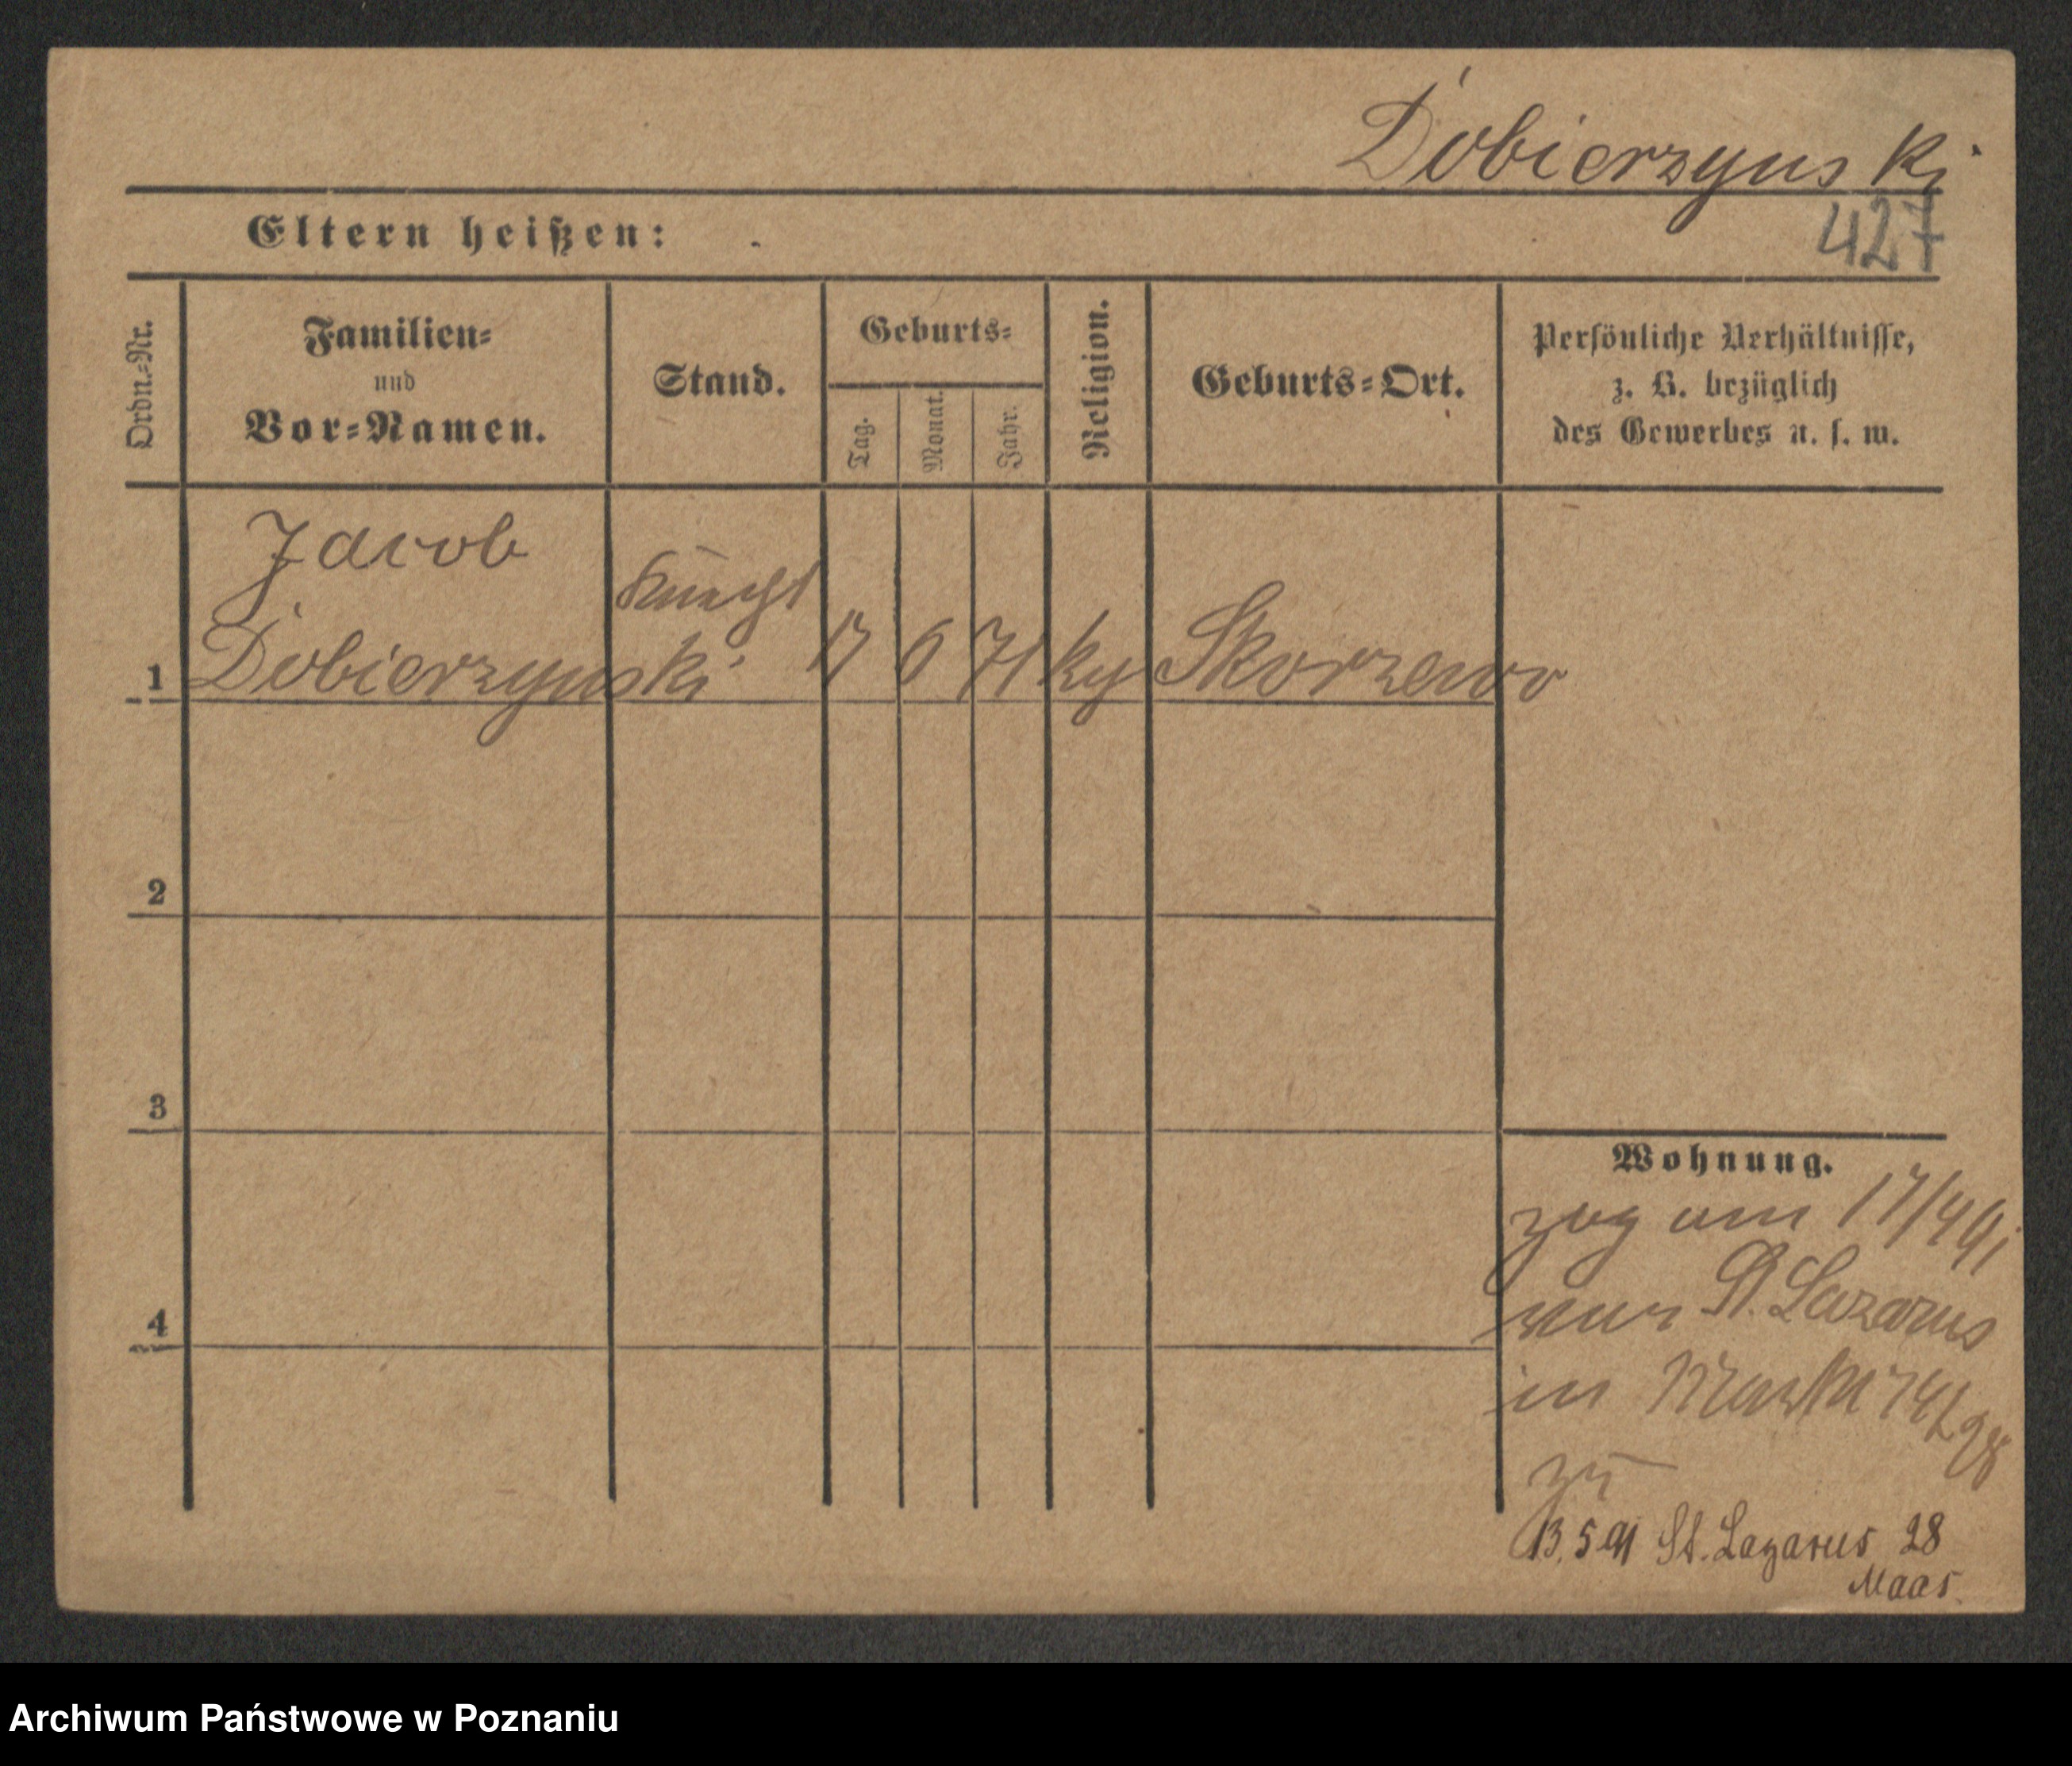 Dobierzynski
427
Eltern heißen:
Ordn.-Nr.
Familien-
und
Vor-Namen.
Stand.
Geburts-
Tag.
Monat.
Jahr.
Religion.
Geburts-Ort.
Persönliche Verhältnisse,
z. B. bezüglich
des Gewerbes u. s. w.
Jacob
Knecht
1 Dobierzynski 17 6 71 Skorzewo
2
3
4
Wohnung.
zog am 17/4 91
St. Lazarus
in
zu
13.5.91 St. Lazarus 28
Maas.
Archiwum Państwowe w Poznaniu